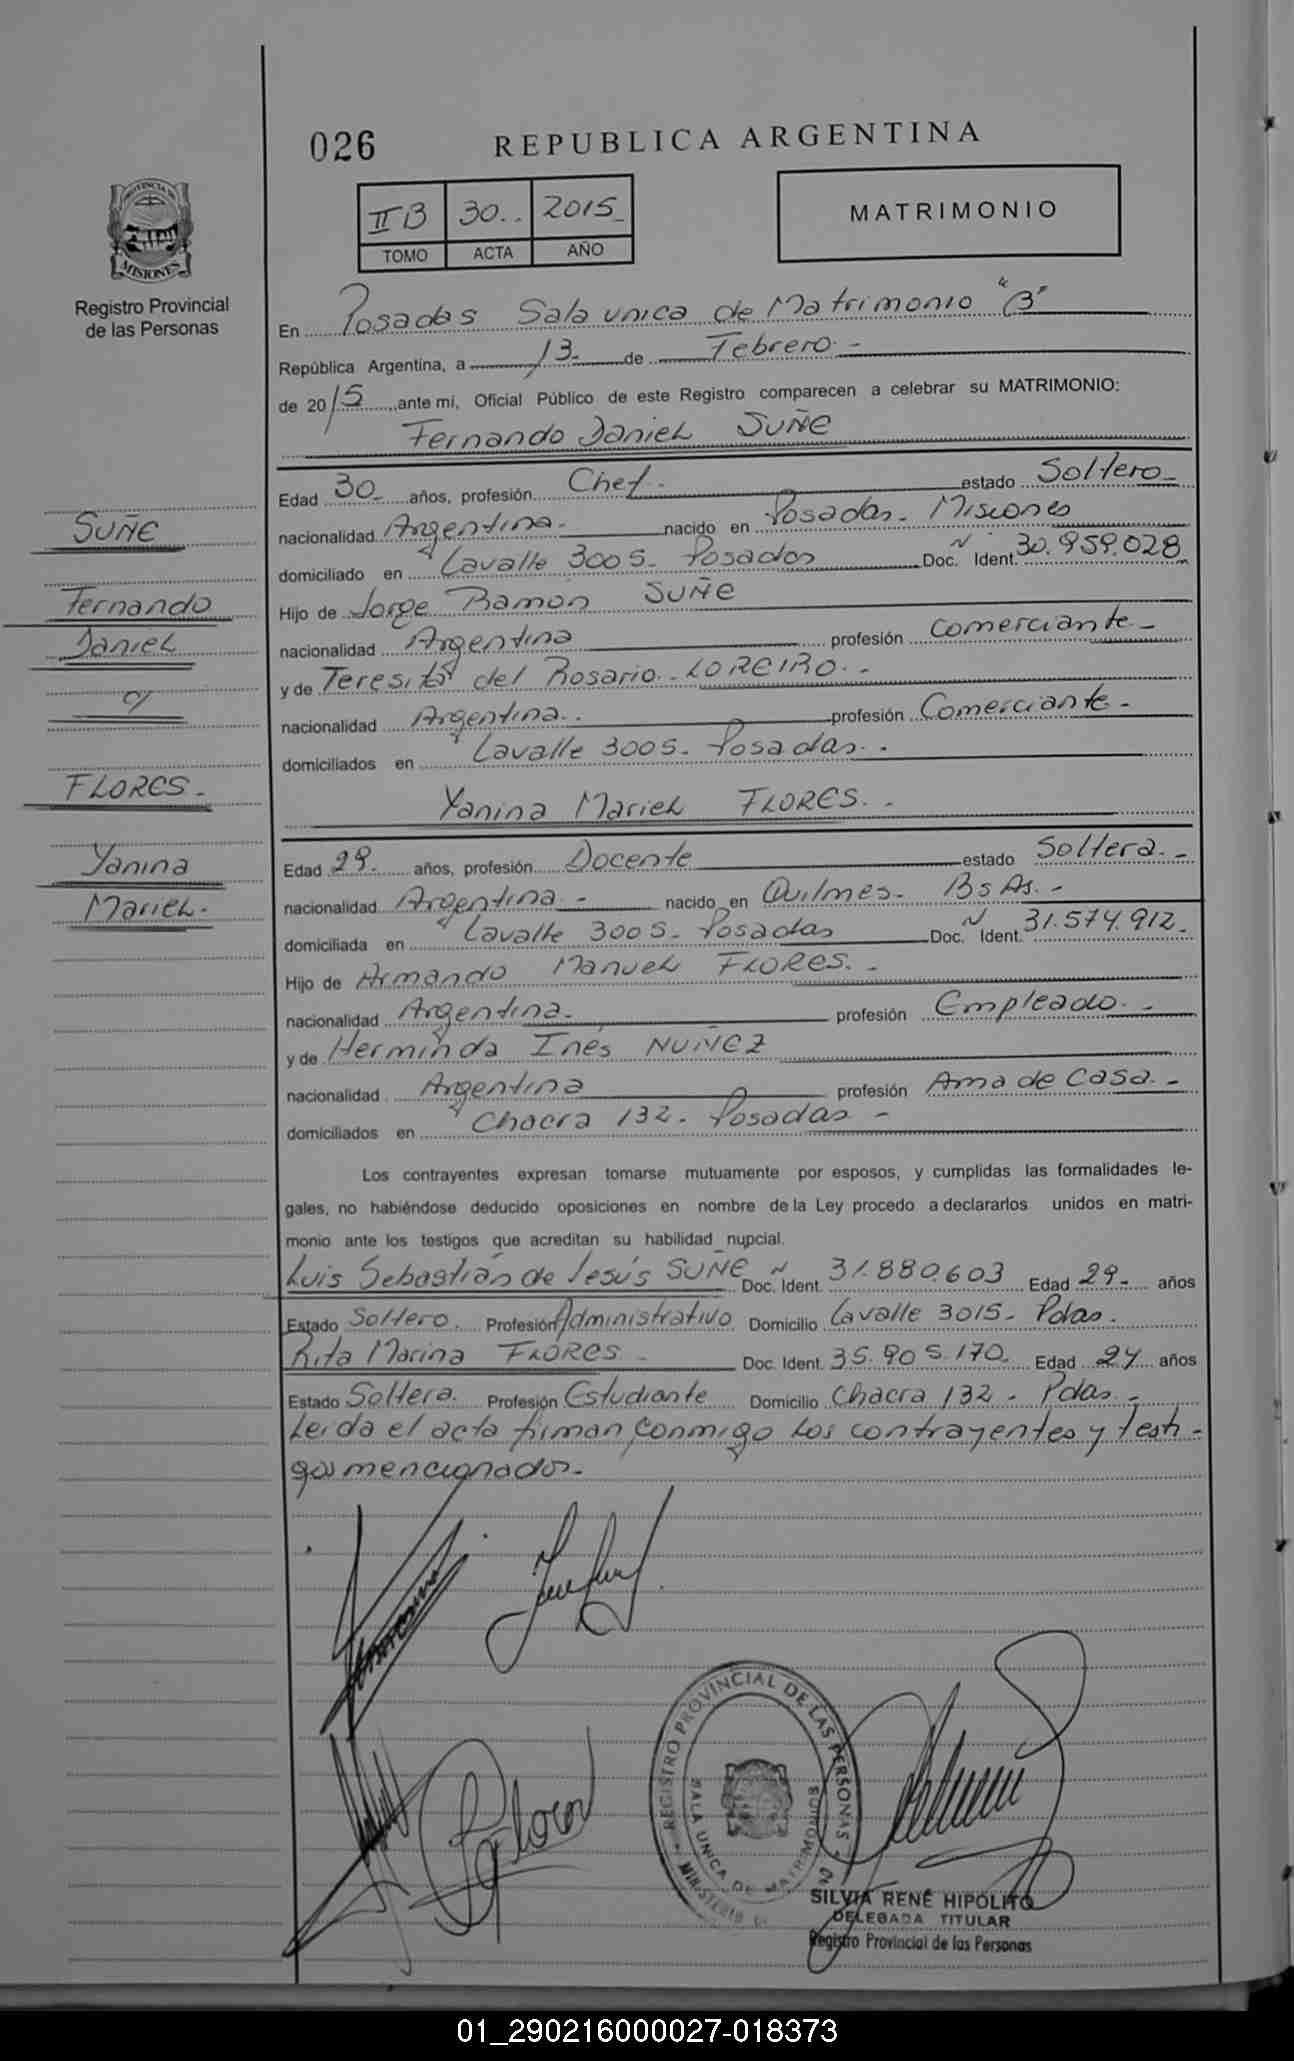 026 REPUBLICA ARGENTINA
PROVINCIA DE
MISIONES
Registro Provincial
de las Personas
II B 30.. 2015
TOMO ACTA AÑO
MATRIMONIO
En Posadas Sala unica de Matrimonio "B"
República Argentina, a 13 de Febrero.-
de 2015, ante mí, Oficial Público de este Registro comparecen a celebrar su MATRIMONIO:
Fernando Daniel SUÑE
Edad 30 años, profesión Chef. estado Soltero
nacionalidad Argentina. nacido en Posadas. Misiones
domiciliado en Lavalle 3005. Posadas Doc. N Ident. 30.959.028
Hijo de Jorge Ramón SUÑE
nacionalidad Argentina profesión comerciante
y de Teresita del Rosario LOREIRO.-
nacionalidad Argentina. profesión Comerciante.
domiciliados en Lavalle 3005. Posadas.
Yanina Mariel FLORES.
Edad 29 años, profesión Docente estado Soltera.-
nacionalidad Argentina - nacido en Quilmes. Bs As.-
domiciliada en Lavalle 3005. Posadas Doc. N Ident. 31.574.912
Hijo de Armando Manuel FLORES.-
nacionalidad Argentina. profesión Empleado.-
y de Herminda Inés NUÑEZ
nacionalidad Argentina profesión Ama de Casa.-
domiciliados en Chacra 132. Posadas -
SUÑE
Fernando
Daniel
c/
FLORES.
Yanina
Mariel.
Los contrayentes expresan tomarse mutuamente por esposos, y cumplidas las formalidades le-
gales, no habiéndose deducido oposiciones en nombre de la Ley procedo a declararlos unidos en matri-
monio ante los testigos que acreditan su habilidad nupcial.
Luis Sebastián de Jesús SUÑE Doc. N Ident. 31.880.603 Edad 29 años
Estado Soltero. Profesión Administrativo Domicilio Lavalle 3015. Pdas.
Rita Marina FLORES - Doc. Ident. 35.905.170. Edad 24 años
Estado Soltera. Profesión Estudiante Domicilio Chacra 132. Pdas.-
Leida el acta firman conmigo los contrayentes y testi-
gos mencionados.-
REGISTRO PROVINCIAL DE LAS PERSONAS
SALA UNICA DE MATRIMONIOS
SILVIA RENÉ HIPÓLITO
DELEGADA TITULAR
Registro Provincial de las Personas
01_290216000027-018373